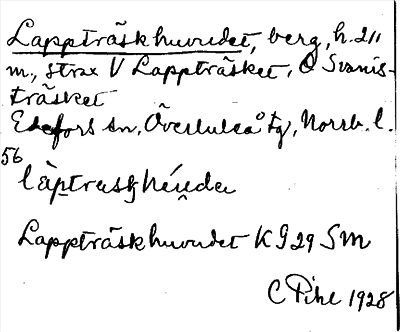 Lappträskhuvudet, berg, h. 211
m., strax V Lappträsket, O Svanis-
träsket
Edefors sn, Överluleå tg, Norrb. l.
56
Lappträskhuvudet K G 29 SM
C Pihl 1928